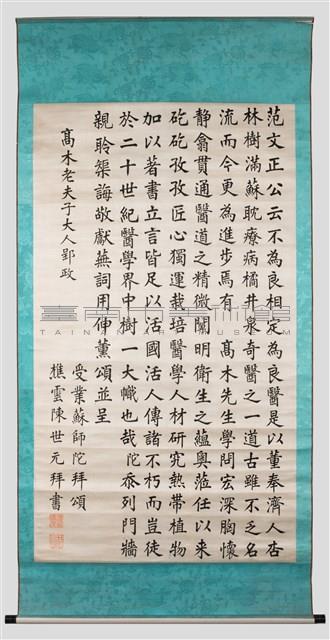 范文正公云不為良相定為良醫是以董奉濟人杏
林樹滿蘇耽療病橘井泉奇醫之一道古雖不乏名
流而今更為進步焉有 髙木先生學問宏深胸懷
静翕貫通醫道之精微闡明衛生之蘊奧蒞任以来
矻矻孜孜匠心獨運栽培醫學人材研究熱帶植物
加以著書立言皆足以活國活人傳諸不朽而豈徒
於二十世紀醫學界中樹一大幟也哉 陀忝列門牆
親聆榘誨敢獻蕪詞用伸薰頌並呈
髙木老夫子大人郢政
受業蘇師陀拜頌
樵雲陳世元拜書